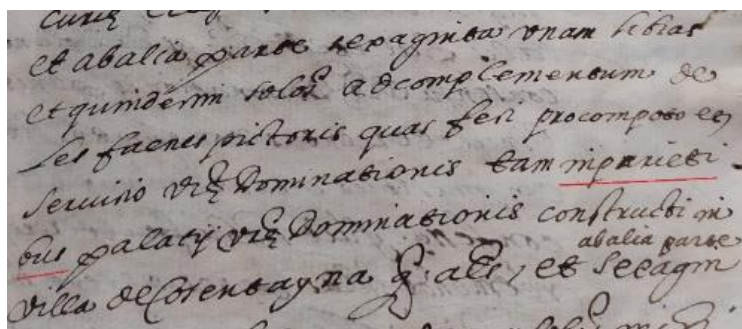 et ab alia parte sepaginta unam libras
et quindecim solos ad complementum de
les faenes pictoris quas feri pro compoto en
servisio vre Dominationis tam in parieti
bus palatij vre Dominationis constructi in
villa de Cosentayna
ab alia parte
et